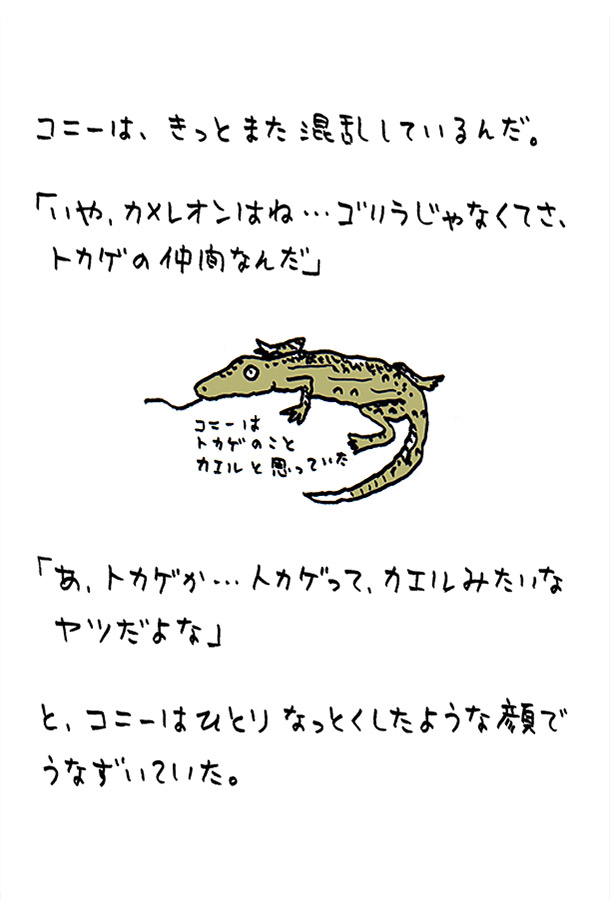 コニーは、きっとまた混乱しているんだ。
「いや、カメレオンはね…ゴリラじゃなくてさ、
トカゲの仲間なんだ」
コニーは
トカゲのこと
カエルと思っていた
「あ、トカゲか…トカゲって、カエルみたいな
ヤツだよな」
と、コニーはひとりなっとくしたような顔で
うなずいていた。